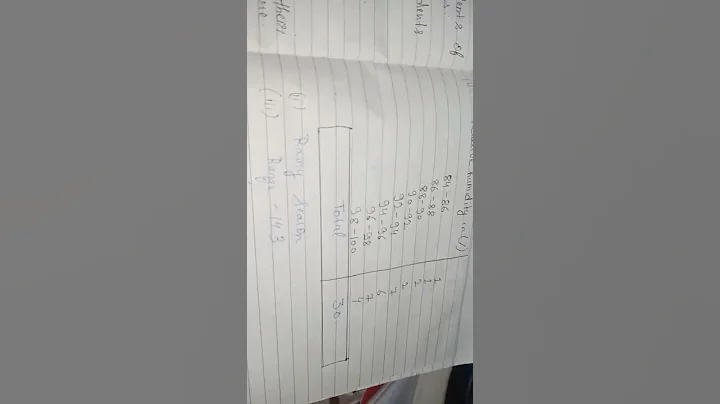 ents of
dents
humidity in (%)
84-86 1
86-88 1
88-90 2
90-92 2
92-94 7
94-96 6
96-98 7
98-100 4
Total 30
(ii) Rainy Season
(iii) Range - 14.3